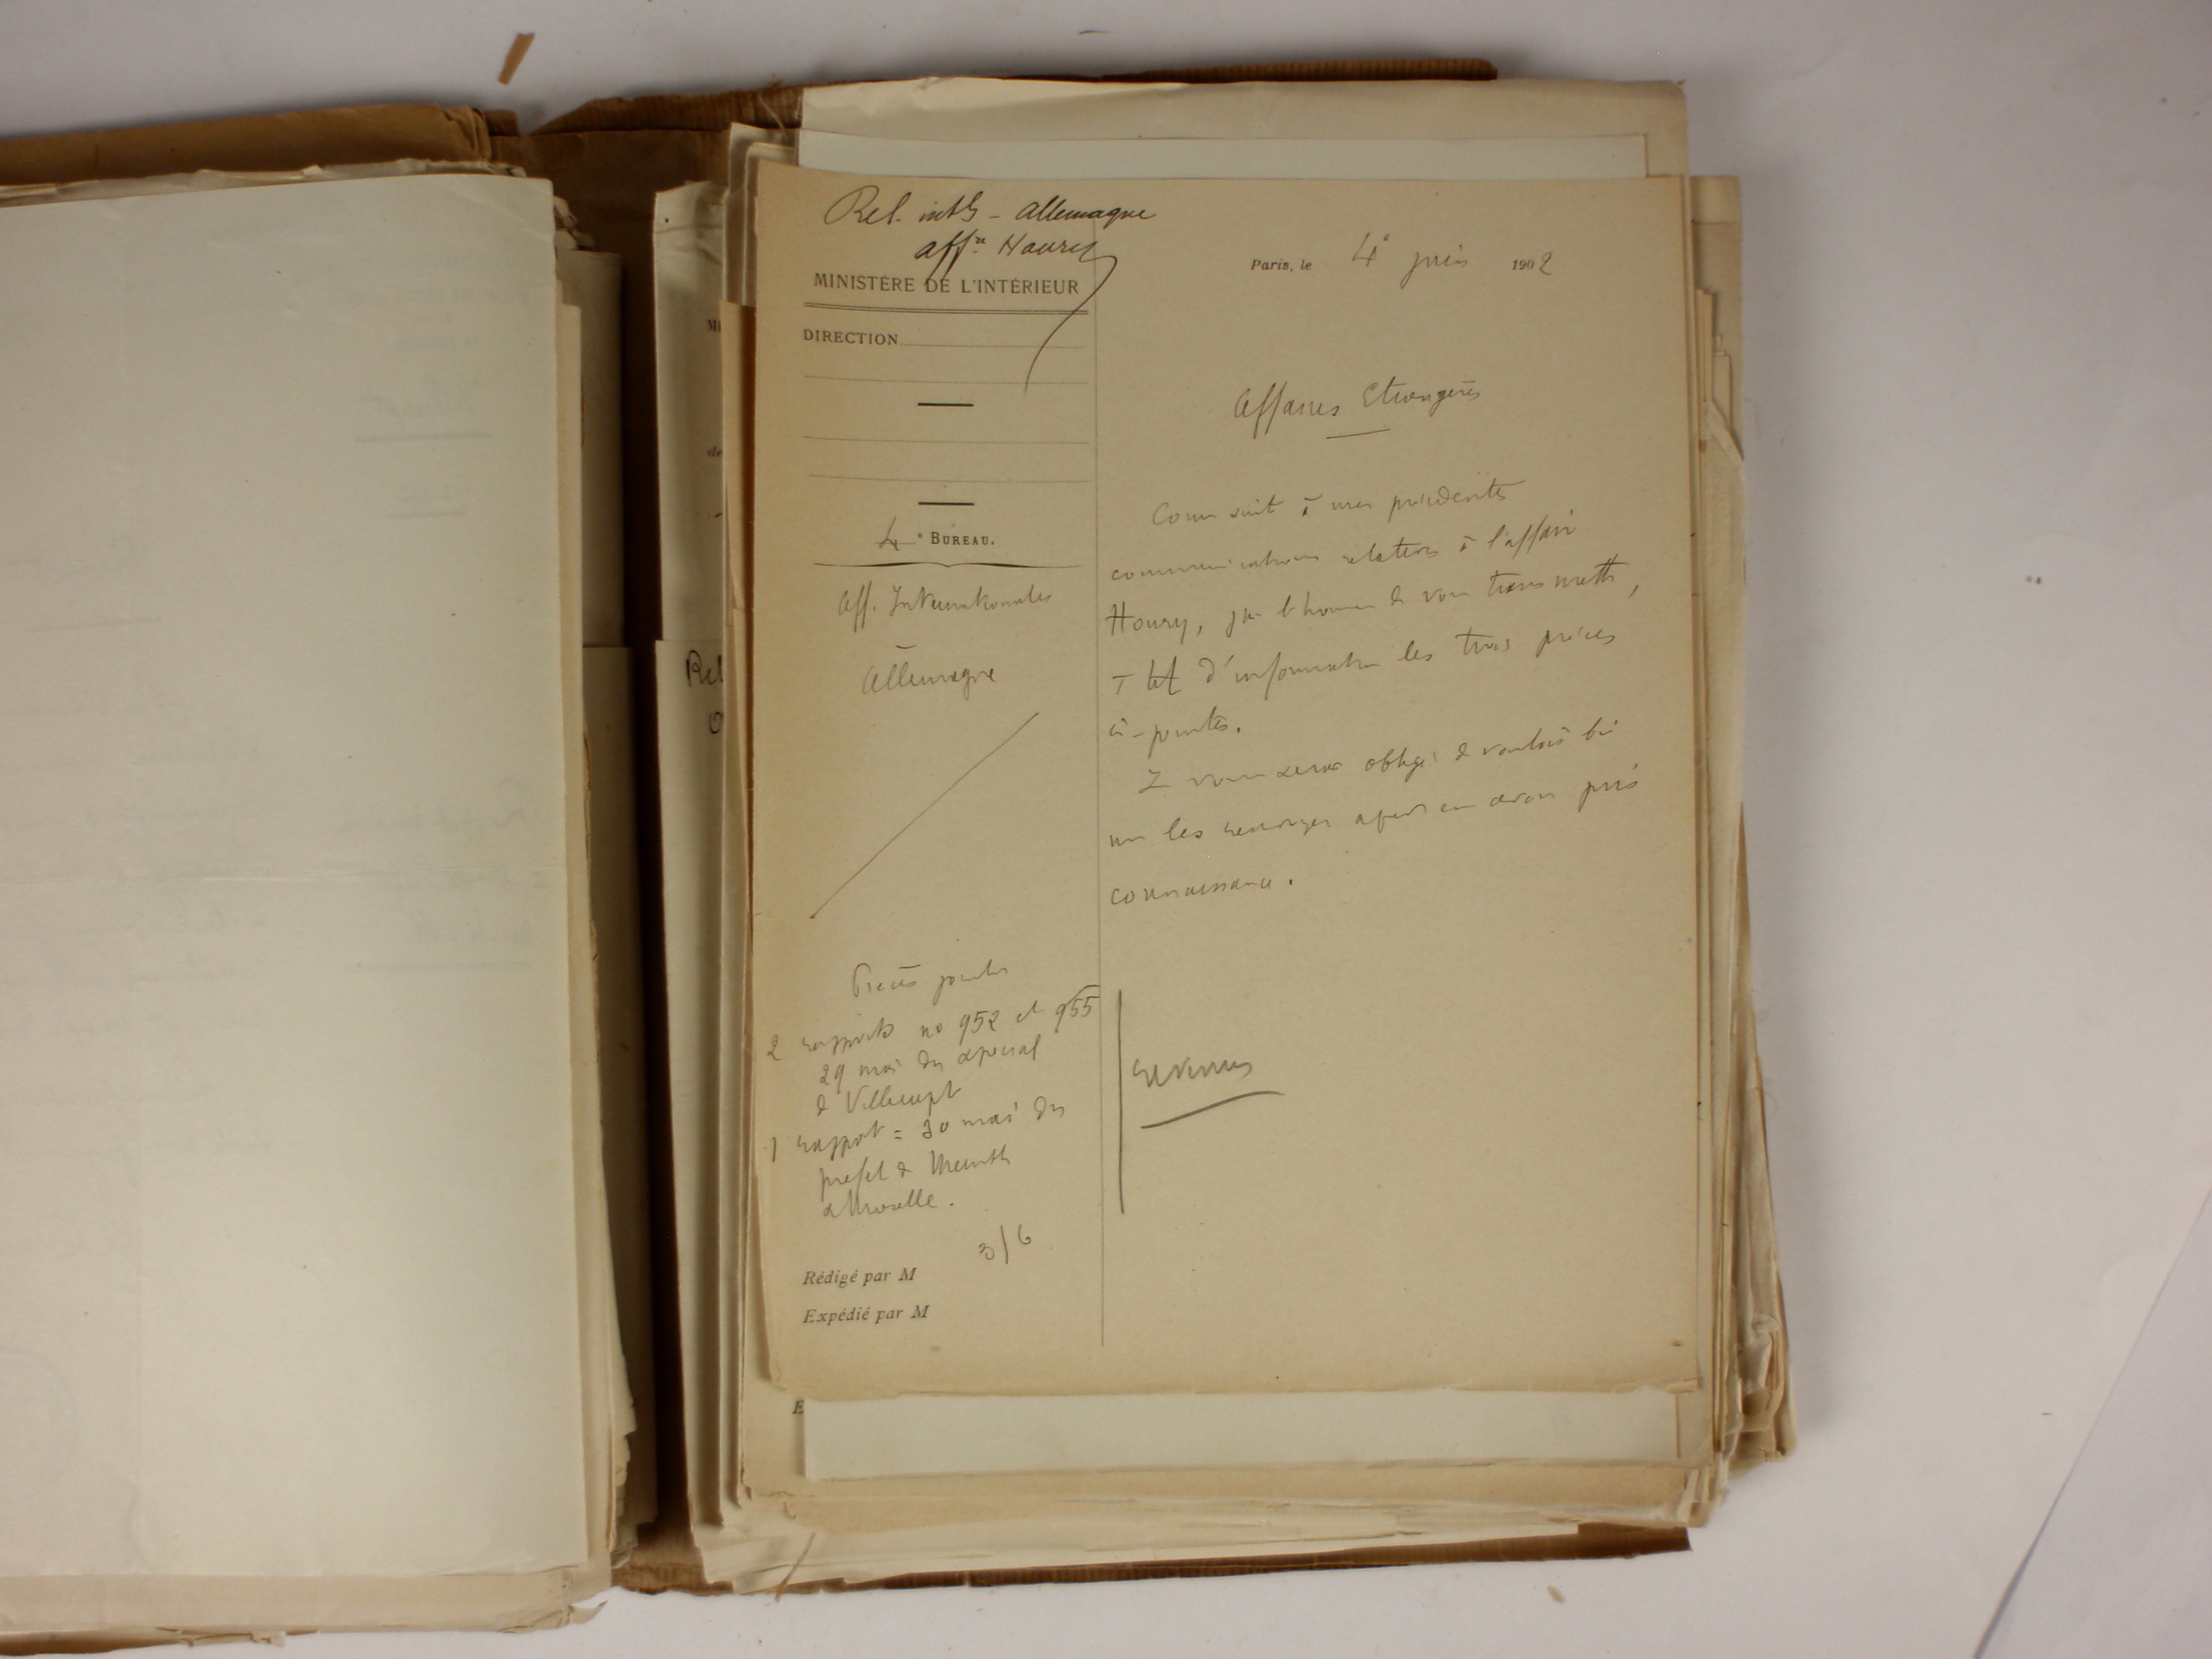 Rel. intles - Allemagne
affre Houry
MINISTÈRE DE L'INTÉRIEUR
DIRECTION
4e BUREAU.
Aff. Internationales
Allemagne
Paris, le 4 juin 1902
Affaires Etrangères
Comme suite à mes précédentes
communications relatives à l'affaire
Houry, j'ai l'honneur de vous transmettre,
à titre d'information les trois pièces
ci-jointes.
Je vous serai obligé de vouloir bien
me les renvoyer après en avoir pris
connaissance.
Pièces jointes
2 rapports no 952 et 955
29 mai du spécial
de Villerupt
1 rapport = 30 mai du
préfet de Meurthe
& Moselle.
3/6
Rédigé par M
Expédié par M
MI
de
Rel
E